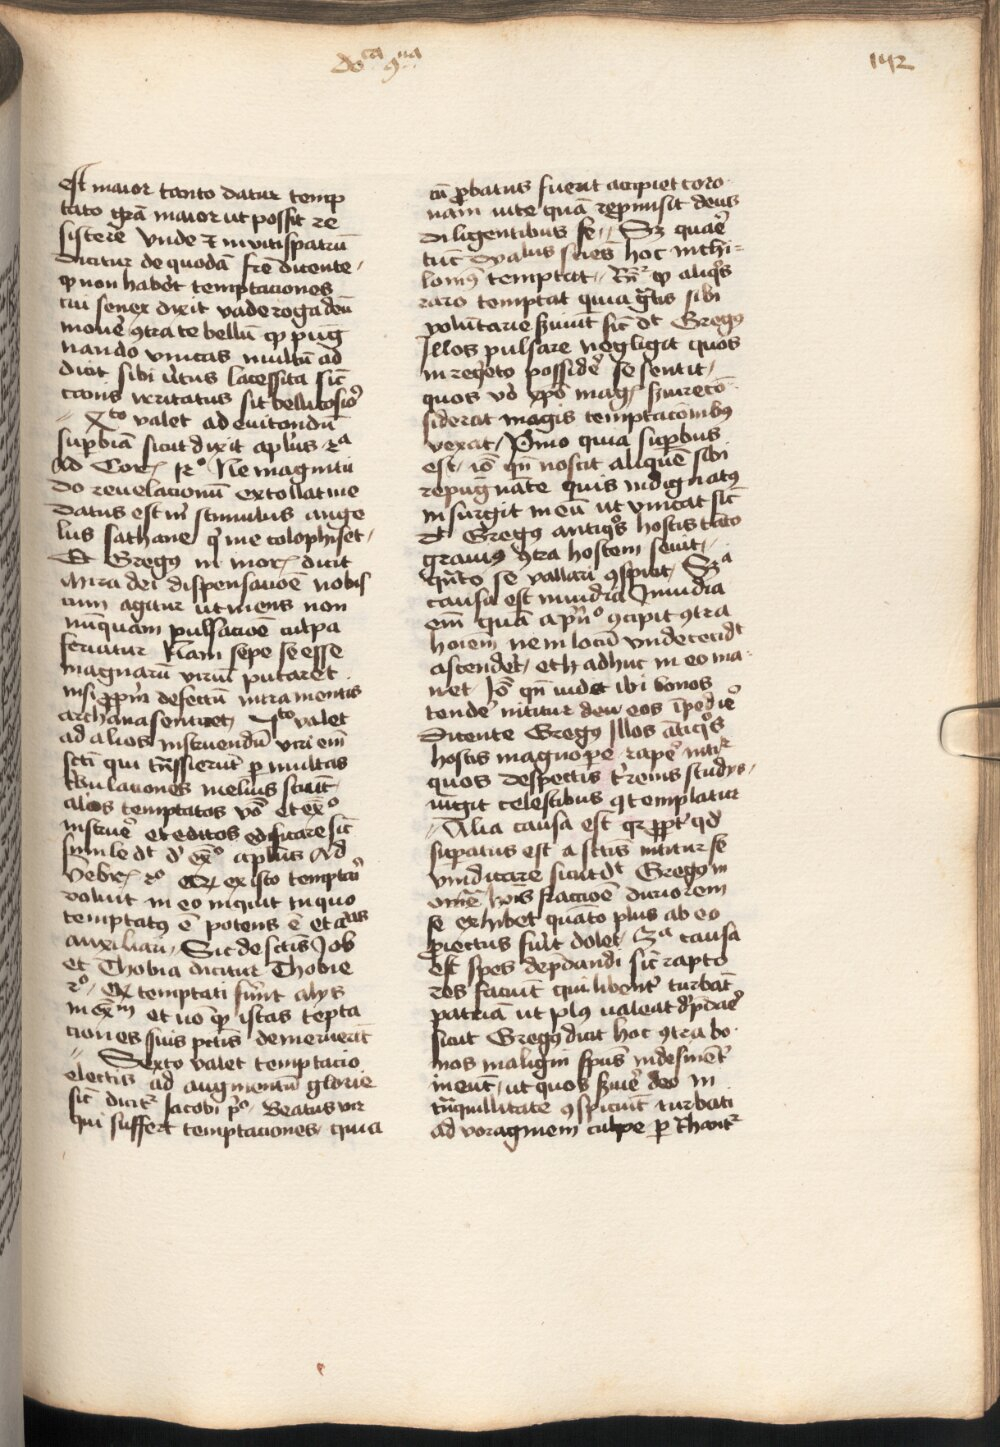 do^ca q^ua
142
est maior tanto datur temp
tato gr̄a maior ut possit re
sistere Unde et in vitispatrū
dicitur de quodā fr̄e dicente
qp non habet temptaciones
cui senex dixit vade roga deū
mouē 9tra te bellū qp pug
nando vincas multū ad
dicit sibi
veritatis sit bellicosior
X^to valet ad euitandū
supbiā sicut dixit apl̄us 2^a
ad Cor Ne magnitu
do reuelacionū extollat me
datus est m̄ stimulus ange
lus sathane q me colophiset
Et Greg9 in mor dicit
Mira dei dispensacioē nobis
cum agitur ut mens non
nūquam pulsacioē culpa
feriatur Nam sepe se esse
magnarū viriū putaret
nisi ppm̄ defectū intra mentis
archana sentiret valet
ad alios instruendū viri em̄
scti qui tn̄ssierūt p multas
tbulationes melius sciūt
alios temptatos
instrue et editos edificare sic
simile dt apl̄us ad
hebre 2° ex isto temptari
voluit in eo inquit in quo
temptat9 ē potens ē et
auxiliari Sic de sctis Job
et Thobia dicitur Thobie
2° temptati sunt alys
in ex^m et uo qp istas tēpta
ciones suis pctis demeruerūt
Sexto valet temptacio
electis ad augmentū glorie
sic dicit^r Jacobi p° Beatus vir
qui suffert temptaciones quia
cū pbatus fuerit accipiet coro
nam uite quā repmisit deus
diligentibus se Sz quare
tūc dyalus sciēs hoc nichi
lomi9 temptat Rn qp aliqs
raro temptat quia gtis sibi
voluntarie fuiūt sic dt Greg9
Illos pulsare negligit quos
in reqeto possidē se sentit
quos vo xpo mag
siderat magis temptacionib9
vexat Pmo quia supbus
est io qn noscit aliquē sibi
repugnāte quis indignat9
insurgit in eū ut vincat sic
dt Greg9 antiqs hostis tāto
graui9 9tra hostem seuit
qnto se vallari 9spicit 2^a
causa est inuidia Inuidia
em̄ quā a pn° 9cipit 9tra
hoiem ne in locū unde cecidt
ascendet et h adhuc in eo ma
net Jo qn uidet ibi bonos
tende nititur deu eos īpedie
dicente Greg9 Illos ātiqs
hostis magnope rape nitir
quos despectis trenis studys
iūgit celestibus 9templatur
Alia causa est qr ppt qd
supatus est a sctis nititur se
vindicare sicut dt Greg9 in
omē hois fraccioē duriorem
se exhibet quāto plus ab eo
piectus fuit dolet 3^a causa
est spes depdandi sic rapto
res faciūt qui libent turbāt
patriā ut pl9 ualeāt dpdāe
sicut Greg9 dicit hoc 9tra bo
nos maligni spus indesinēt
ineūt ut quos deo in
tnquillitate 9spiciūt turbati
ad voraginem culpe p